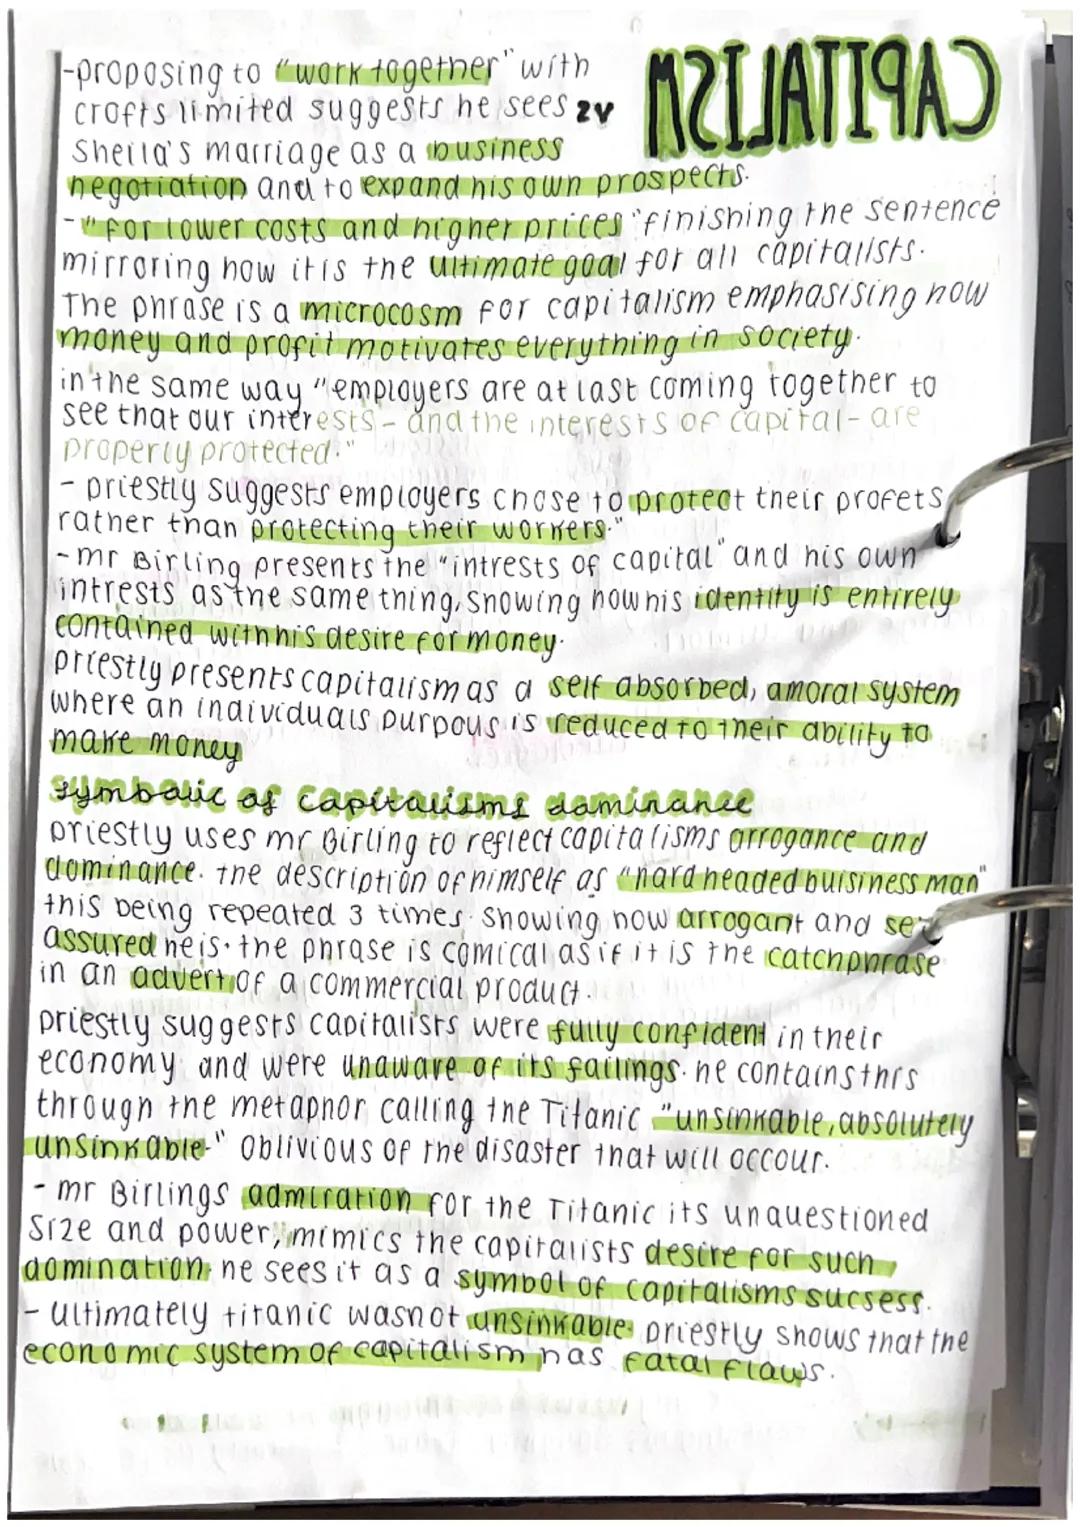 CAPITALISM
-proposing to "work together" with
crofts limited suggests he sees
Sheila's marriage as a business
negotiation and to expand his own prospects.
- "for lower costs and higher prices" finishing the sentence
mirroring how it is the ultimate goal for all capitalists.
The phrase is a microcosm for capitalism emphasising how
money and profit motivates everything in society.
in the same way "employers are at last coming together to
see that our interests - and the interests of capital - are
properly protected."
- priestly suggests employers chose to protect their profets
rather than protecting their workers."
- mr Birling presents the "intrests of capital" and his own
intrests as the same thing, showing how his identity is entirely
contained with his desire for money.
priestly presents capitalism as a self absorbed, amoral system
where an individuals purpous is reduced to their ability to
make money
symbolic of capitalisms dominance
priestly uses mr Birling to reflect capitalisms arrogance and
dominance. the description of himself as "hard headed buisiness man"
this being repeated 3 times. Showing how arrogant and self
assured he is. the phrase is comical as if it is the catchphrase
in an advert of a commercial product.
priestly suggests capitalists were fully confident in their
economy and were unaware of its failings. he contains this
through the metaphor calling the Titanic "unsinkable, absolutely
unsinkable." oblivious of the disaster that will occour.
- mr Birlings admiration for the Titanic its unquestioned
size and power, mimics the capitalists desire for such
domination. he sees it as a symbol of capitalisms sucsess.
- ultimately titanic was not unsinkable. priestly shows that the
economic system of capitalism has fatal flaws.